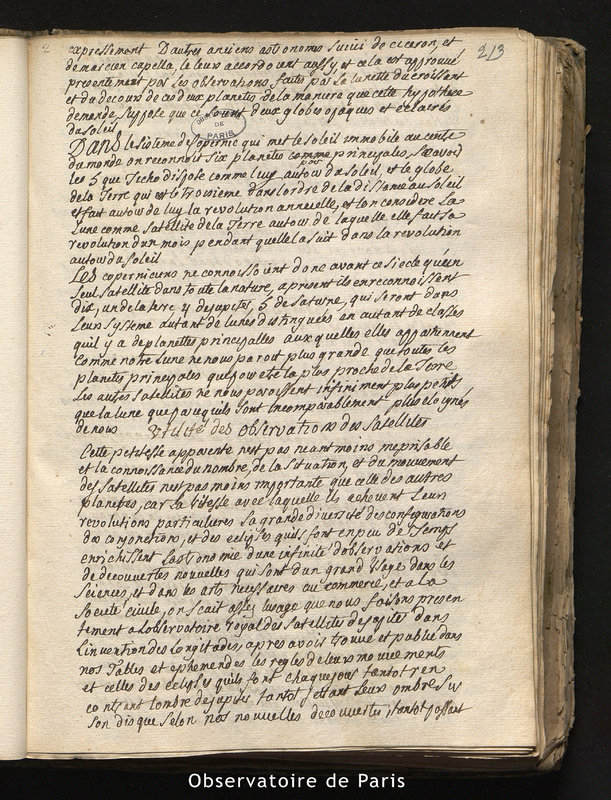 213
expressement D'autres anciens astronomes suivis de ciceron, et
de marcien capella, le leur accordoient aussy et cela est approuvé
presentement par les observations faites par la lunette du croissant
et du decours de ces deux planetes de la maniere que cette hypothese
demande, suppose que ce soient deux globes opaques et eclairés
du soleil
OBSERVATOIRE DE PARIS
Dans le sisteme de Copernic qui met le soleil immobile au centre
du monde on reconnoit six planetes comme principales, sçavoir
les 5 que Ticho dispose comme luy autour du soleil, et le globe
de la Terre qui est le troisieme dans l'ordre de la distance au soleil
et fait autour de luy la revolution annuelle, et l'on considere la
Lune comme satellite de la Terre autour de laquelle elle fait sa
revolution d'un mois pendant quelle la suit dans la revolution
autour du soleil
Les coperniciens ne connoissoient donc avant ce siecle qu'un
seul satellite dans toute la nature, apresent ils en reconnoissent
dix, un de la terre 4 de jupiter, 5 de saturne, qui seront dans
leur systeme autant de lunes distinguées en autant de classes
quil y a de planettes principalles auxquelles elles appartiennent
Comme notre Lune ne nous paroit plus grande que toutes les
planetes principales que pour etre la plus proche de la Terre
Les autres satellites ne nous paroissent infiniment plus petits
que la lune que parcequils sont incomparablement plus eloignés
de nous Utilité des observations des satellites
Cette petitesse apparente n'est pas neantmoins meprisable
et la connoissance du nombre, de la situation, et du mouvement
des satellites n'est pas moins importante que celle des autres
planetes, car la vitesse avec laquelle ils achevent leurs
revolutions particulieres la grande diversité des configurations
des conjonctions, et des eclipses quils font en peu de Temps
enrichissent l'astronomie d'une infinité d'observations et
de decouvertes nouvelles qui sont d'un grand usage dans les
sciences, et dans les arts necessaires au commerce, et a la
societé civile, on scait assés l'usage que nous faisons presen
tement a l'observatoire royal des satellites de jupiter dans
l'invention des Longitudes, apres avoir trouvé et publié dans
nos Tables et ephemerides les regles de leurs mouvements
et celles des eclipses quils font chaque jour tantot ren
contrant l'ombre de jupiter tantot jettant leurs ombres sur
son disque selon nos nouvelles decouvertes, tantot passant
Observatoire de Paris